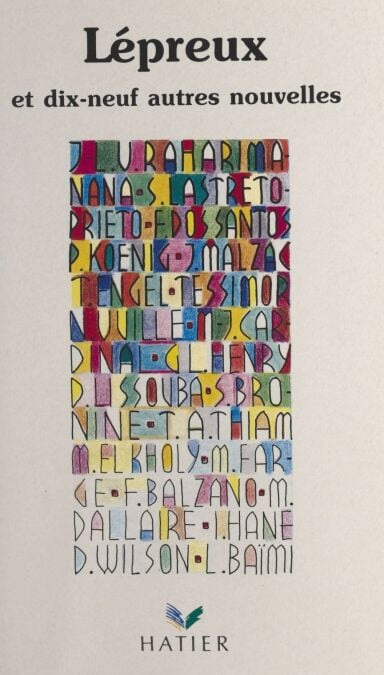 Lépreux
et dix-neuf autres nouvelles
J-L.V.RAHARIMA-
NANA·S.LASTRETO-
PRIETO·F.DOSSANTOS
P.KOENIG·J.MALZAC
T.ANGEL·TESSIMOR
NIVILLE·M-J.CAR-
DINAL·C-L.HENRY
D.ISSOUBA·S.BRO-
NINE·T.A.THIAM
M.ELKHOLY·M.FAR-
GE·F.BALZANO·M.
DALLAIRE·I.HANE
D.WILSON·L.BAÏMI
HATIER